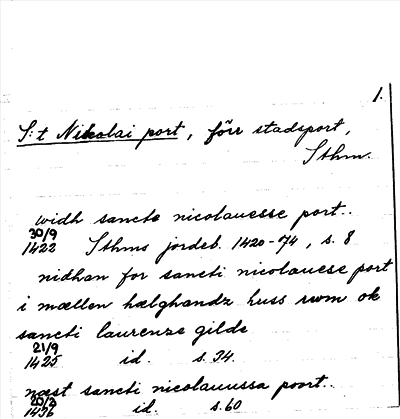 1.
S:t Nikolai port, förr stadsport,
Sthm.
widh sancte nicolauesse port..
30/9
1422 Sthms jordeb. 1420-74, s. 8
nidhan for sancti nicolauese port
i mællen hælghandz huss rwm ok
sancti laurenze gilde
21/9
1425 id. s. 34.
næst sancti nicolauussa poort..
1436 id. s. 60